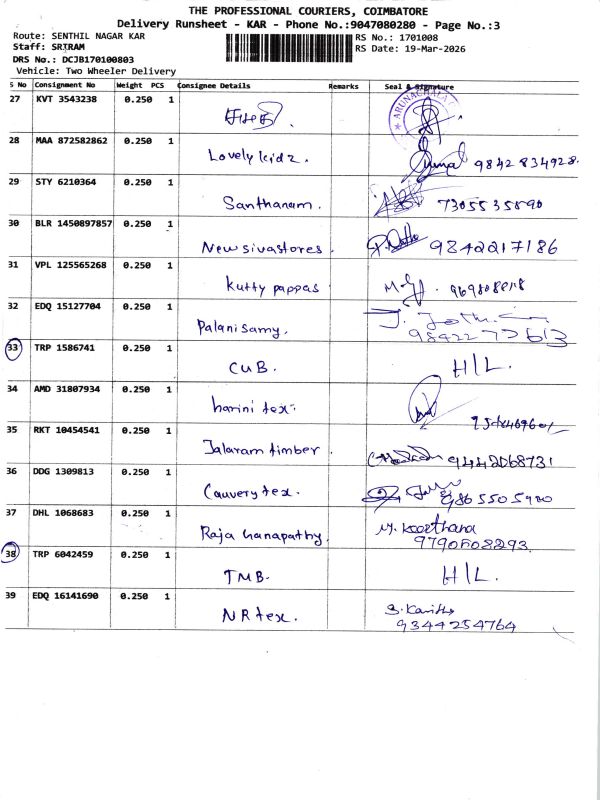 THE PROFESSIONAL COURIERS, COIMBATORE
Delivery Runsheet - KAR - Phone No.:9047080280 - Page No.:3
Route: SENTHIL NAGAR KAR
RS No.: 1701008
Staff: SRIRAM
RS Date: 19-Mar-2026
DRS No.: DCJB170100803
Vehicle: Two Wheeler Delivery
S No Consignment No Weight PCS Consignee Details Remarks Seal & Signature
27 KVT 3543238 0.250 1
ARUNACHALA
28 MAA 872582862 0.250 1
Lovely kidz. 9842834928.
29 STY 6210364 0.250 1
Santhanam. 7305535890
30 BLR 1450897857 0.250 1
New sivastores. 9842217186
31 VPL 125565268 0.250 1
Kutty pappas
32 EDQ 15127704 0.250 1
Palanisamy. 9842272613
33 TRP 1586741 0.250 1
CUB. H/L.
34 AMD 31807934 0.250 1
harini tex.
35 RKT 10454541 0.250 1
Jalaram timber 9442068731
36 DDG 1309813 0.250 1
Cauvery tex. 9865505900
37 DHL 1068683 0.250 1
Raja Ganapathy. M. Keerthana
9790608293
38 TRP 6042459 0.250 1
TMB. H/L.
39 EDQ 16141690 0.250 1
NR tex. S. Kavitha
9344254764